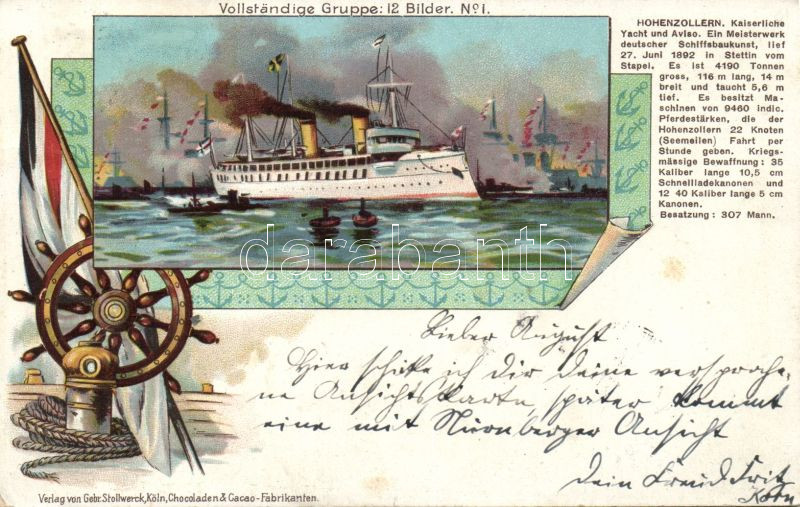 Vollständige Gruppe: 12 Bilder. No 1.
HOHENZOLLERN. Kaiserliche
Yacht und Aviso. Ein Meisterwerk
deutscher Schiffsbaukunst, lief
27. Juni 1892 in Stettin vom
Stapel. Es ist 4190 Tonnen
gross, 116 m lang, 14 m
breit und taucht 5,6 m
tief. Es besitzt Ma-
schinen von 9460 indic.
Pferdestärken, die der
Hohenzollern 22 Knoten
(Seemeilen) Fahrt per
Stunde geben. Kriegs-
mässige Bewaffnung: 35
Kaliber lange 10,5 cm
Schnellladekanonen und
12 40 Kaliber lange 5 cm
Kanonen.
Besatzung: 307 Mann.
darabanth
Lieber August
Hier schicke ich dir deine versproche-
ne Ansichtskarte, später kommt
eine mit Nürnberger Ansicht
Dein Freund Fritz
Verlag von Gebr. Stollwerck, Köln, Chocoladen & Cacao-Fabrikanten.